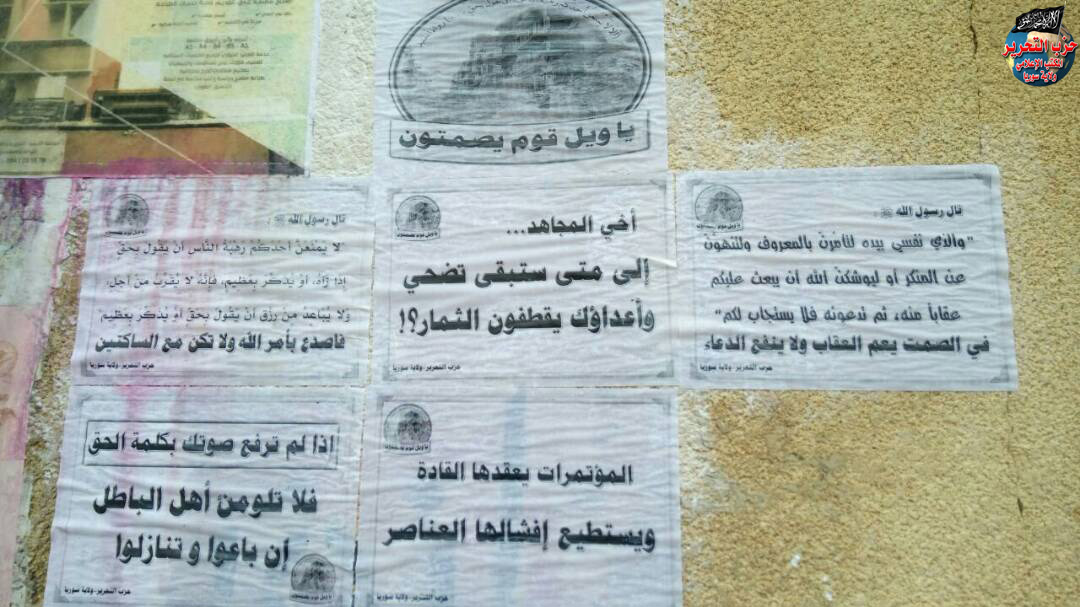 حزب التحرير
المكتب الإعلامي
ولاية سوريا
يا ويل قوم يصمتون
قال رسول الله ﷺ :
"والذي نفسي بيده لتأمرن بالمعروف ولتنهون
عن المنكر أو ليوشكن الله أن يبعث عليكم
عقاباً منه، ثم تدعونه فلا يستجاب لكم"
في الصمت يعم العقاب ولا ينفع الدعاء
حزب التحرير- ولاية سوريا
أخي المجاهد...
إلى متى ستبقى تضحي
وأعداؤك يقطفون الثمار؟!
حزب التحرير- ولاية سوريا
قال رسول الله ﷺ :
لا يمنعن أحدكم رهبة الناس أن يقول بحق
إذا رآه، أو يذكر بعظيم، فإنه لا يقرب من أجل،
ولا يباعد من رزق أن يقول بحق أو يذكر بعظيم"
فاصدع بأمر الله ولا تكن مع الساكتين
حزب التحرير- ولاية سوريا
يا ويل قوم يصمتون
المؤتمرات يعقدها القادة
ويستطيع إفشالها العناصر
حزب التحرير- ولاية سوريا
إذا لم ترفع صوتك بكلمة الحق
فلا تلومن أهل الباطل
إن باعوا و تنازلوا
يا ويل قوم يصمتون
حزب التحرير- ولاية سوريا